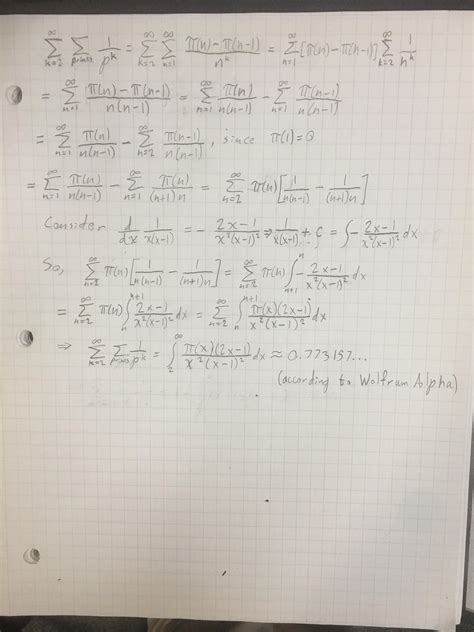 ∞∑k=2 ∑primes 1/p^k = ∞∑k=2 ∞∑n=1 (π(n)-π(n-1))/n^k = ∞∑n=1 [π(n)-π(n-1)] ∞∑k=2 1/n^k
= ∞∑n=1 (π(n)-π(n-1))/(n(n-1)) = ∞∑n=1 π(n)/(n(n-1)) - ∞∑n=1 π(n-1)/(n(n-1))
= ∞∑n=1 π(n)/(n(n-1)) - ∞∑n=2 π(n-1)/(n(n-1)), since π(1)=0
= ∞∑n=1 π(n)/(n(n-1)) - ∞∑n=1 π(n)/((n+1)n) = ∞∑n=2 π(n)[1/(n(n-1)) - 1/((n+1)n)]
Consider d/dx 1/(x(x-1)) = - (2x-1)/(x²(x-1)²) ⇒ 1/(x(x-1)) + C = ∫- (2x-1)/(x²(x-1)²) dx
So, ∞∑n=2 π(n)[1/(n(n-1)) - 1/((n+1)n)] = ∞∑n=2 π(n) ∫_{n+1}^{n} - (2x-1)/(x²(x-1)²) dx
= ∞∑n=2 π(n) ∫_{n}^{n+1} (2x-1)/(x²(x-1)²) dx = ∞∑n=2 ∫_{n}^{n+1} π(x)(2x-1)/(x²(x-1)²) dx
⇒ ∞∑k=2 ∑primes 1/p^k = ∫_{2}^{∞} π(x)(2x-1)/(x²(x-1)²) dx ≈ 0.773157...
(according to Wolfram Alpha)